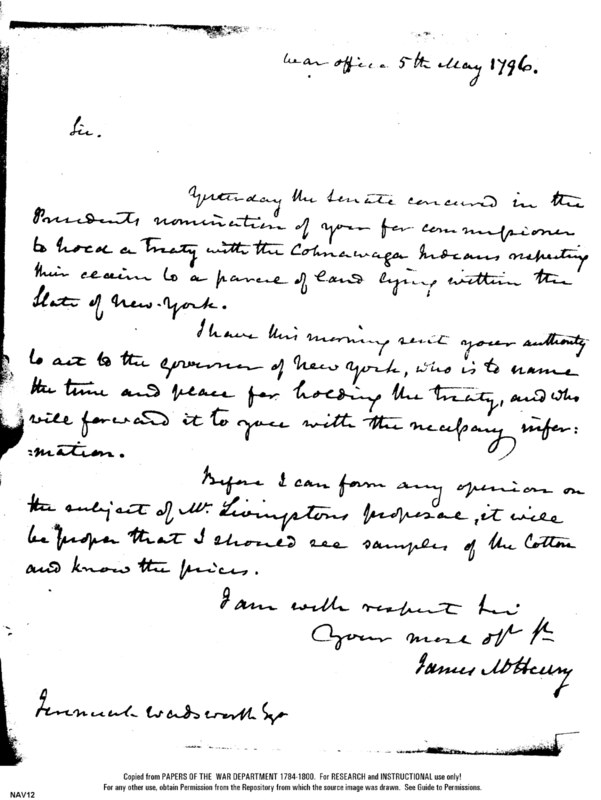 War office 5th May 1796.
Sir.
Yesterday the Senate concured in the
Presidents nomination of you for commissioner
to hold a treaty with the Cohnawaga Indians respecting
their claim to a parcel of land lying within the
State of New-York.
I have this morning sent your authority
to act to the governor of New York, who is to name
the time and place for holding the treaty, and who
will forward it to you with the necessary infor:
:mation.
Before I can form any opinion on
the subject of Mr. Livingstons proposal, it will
be proper that I should see samples of the Cotton
and know the prices.
I am with respect Sir
Your most obt st
James McHenry
Jeremiah Wadsworth Esqr
Copied from PAPERS OF THE WAR DEPARTMENT 1784-1800. For RESEARCH and INSTRUCTIONAL use only!
For any other use, obtain Permission from the Repository from which the source image was drawn. See Guide to Permissions.
NAV12